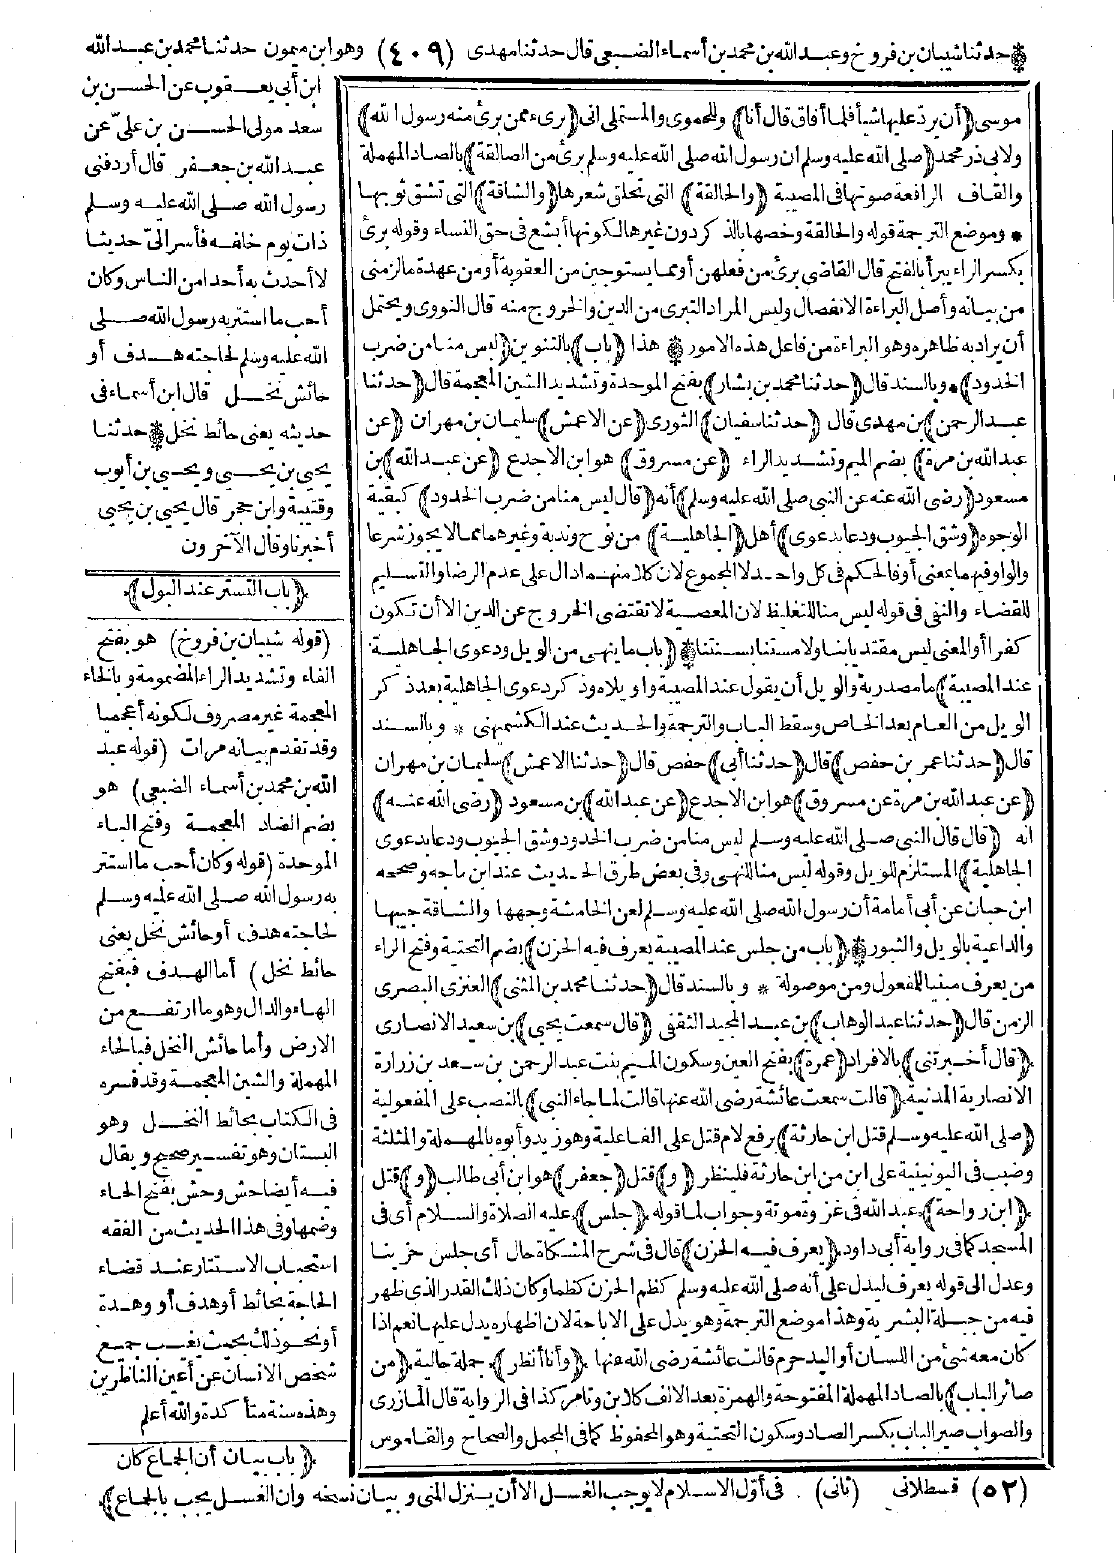 * حدثنا شيبان بن فروخ وعبد الله بن محمد بن أسماء الضبعى قال حدثنا مهدى (٤٠٩) وهو ابن ميمون حدثنا محمد بن عبد الله
موسى (أن يردّ عليها شيأ فلما أفاق قال أنا) وللحموى والمستملى انى (برىء ممن برئ منه رسول الله)
ولابى ذر محمد (صلى الله عليه وسلم ان رسول الله صلى الله عليه وسلم برئ من الصالقة) بالصاد المهملة
والقاف الرافعة صوتها فى المصيبة (والحالقة) التى تحلق شعرها (والشاقة) التى تشق ثوبها
* وموضع الترجمة قوله والحالقة وخصها بالذكر دون غيرها لكونها أبشع فى حق النساء وقوله برئ
بكسر الراء يبرأ بالفتح قال القاضى برئ من فعلهن أو مما يستوجبن من العقوبة أو من عهدة ما لزمنى
من بيانه وأصل البراءة الانفصال وليس المراد التبرى من الدين والخروج منه قال النووى ويحتمل
أن يراد به ظاهره وهو البراءة من فاعل هذه الامور * هذا (باب) بالتنوين (ليس منا من ضرب
الخدود) * وبالسند قال (حدثنا محمد بن بشار) بفتح الموحدة وتشديد الشين المعجمة قال (حدثنا
عبد الرحمن) بن مهدى قال (حدثنا سفيان) الثورى (عن الاعمش) سليمان بن مهران (عن
عبد الله بن مرة) بضم الميم وتشديد الراء (عن مسروق) هو ابن الاجدع (عن عبد الله) بن
مسعود (رضى الله عنه عن النبى صلى الله عليه وسلم) أنه (قال ليس منا من ضرب الخدود) كبقية
الوجوه (وشق الجيوب ودعا بدعوى) أهل (الجاهلية) من نوح وندبة وغيرهما مما لا يجوز شرعا
والواو فيهما بمعنى أو فالحكم فى كل واحد لا المجموع لان كلا منهما دال على عدم الرضا والتسليم
للقضاء والنفى فى قوله ليس منا للتغليظ لان المعصية لا تقتضى الخروج عن الدين الا أن تكون
كفرا أو المعنى ليس مقتديا بنا ولا مستنا بسنتنا * (باب ما ينهى من الويل ودعوى الجاهلية
عند المصيبة) ما مصدرية والويل أن يقول عند المصيبة واويلاه وذكر دعوى الجاهلية بعد ذكر
الويل من العام بعد الخاص وسقط الباب والترجمة والحديث عند الكشميهنى * وبالسند
قال (حدثنا عمر بن حفص) قال (حدثنا أبى) حفص قال (حدثنا الاعمش) سليمان بن مهران
(عن عبد الله بن مرة عن مسروق) هو ابن الاجدع (عن عبد الله) بن مسعود (رضى الله عنه)
انه (قال قال النبى صلى الله عليه وسلم ليس منا من ضرب الخدود وشق الجيوب ودعا بدعوى
الجاهلية) المستلزم للويل وقوله ليس منا للنهى وفى بعض طرق الحديث عند ابن ماجه وصححه
ابن حبان عن أبى أمامة أن رسول الله صلى الله عليه وسلم لعن الخامشة وجهها والشاقة جيبها
والداعية بالويل والثبور * (باب من جلس عند المصيبة يعرف فيه الحزن) بضم التحتية وفتح الراء
من يعرف مبنيا للمفعول ومن موصولة * وبالسند قال (حدثنا محمد بن المثنى) العنزى البصرى
الزمن قال (حدثنا عبد الوهاب) بن عبد المجيد الثقفى (قال سمعت يحيى) بن سعيد الانصارى
(قال أخبرتنى) بالافراد (عمرة) بفتح العين وسكون الميم بنت عبد الرحمن بن سعد بن زرارة
الانصارية المدنية (قالت سمعت عائشة رضى الله عنها قالت لما جاء النبى) بالنصب على المفعولية
(صلى الله عليه وسلم قتل ابن حارثة) برفع لام قتل على الفاعلية وهو زيد وأبوه بالمهملة والمثلثة
وضبب فى اليونينية على ابن من ابن حارثة فلينظر (و) قتل (جعفر) هو ابن أبى طالب (و) قتل
(ابن رواحة) عبد الله فى غزوة موتة وجواب لما قوله (جلس) عليه الصلاة والسلام أى فى
المسجد كما فى رواية أبى داود (يعرف فيه الحزن) قال فى شرح المشكاة حال أى جلس حزينا
وعدل الى قوله يعرف ليدل على أنه صلى الله عليه وسلم كظم الحزن كظما وكان ذلك القدر الذى ظهر
فيه من جبلة البشرية وهذا موضع الترجمة وهو يدل على الاباحة لان اظهاره يدل عليها نعم اذا
كان معه شئ من اللسان أو اليد حرم قالت عائشة رضى الله عنها (وأنا أنظر) جملة حالية (من
صائر الباب) بالصاد المهملة المفتوحة والهمزة بعد الالف كلابن وتامر كذا فى الرواية قال المازرى
والصواب صير الباب بكسر الصاد وسكون التحتية وهو المحفوظ كما فى المجمل والصحاح والقاموس
ابن أبى يعقوب عن الحسن بن
سعد مولى الحسن بن علىّ عن
عبد الله بن جعفر قال أردفنى
رسول الله صلى الله عليه وسلم
ذات يوم خلفه فأسر الىّ حديثا
لا أحدث به أحدا من الناس وكان
أحب ما استتر به رسول الله صلى
الله عليه وسلم لحاجته هدف أو
حائش نخل قال ابن أسماء فى
حديثه يعنى حائط نخل * حدثنا
يحيى بن يحيى ويحيى بن أيوب
وقتيبة وابن حجر قال يحيى بن يحيى
أخبرنا وقال الآخرون
(باب التستر عند البول)
(قوله شيبان بن فروخ) هو بفتح
الفاء وتشديد الراء المضمومة وبالخاء
المعجمة غير مصروف لكونه أعجميا
وقد تقدم بيانه مرات (قوله عبد
الله بن محمد بن أسماء الضبعى) هو
بضم الضاد المعجمة وفتح الباء
الموحدة (قوله وكان أحب ما استتر
به رسول الله صلى الله عليه وسلم
لحاجته هدف أو حائش نخل يعنى
حائط نخل) أما الهدف فبفتح
الهاء والدال وهو ما ارتفع من
الارض وأما حائش النخل فبالحاء
المهملة والشين المعجمة وقد فسره
فى الكتاب بحائط النخل وهو
البستان وهو تفسير صحيح ويقال
فيه أيضا حش وحش بفتح الحاء
وضمها وفى هذا الحديث من الفقه
استحباب الاستتار عند قضاء
الحاجة بحائط أو هدف أو وهدة
أو نحو ذلك بحيث يغيب جميع
شخص الانسان عن أعين الناظرين
وهذه سنة متأكدة والله أعلم
(باب بيان أن الجماع كان
(٥٢) قسطلانى (ثانى) فى أوّل الاسلام لا يوجب الغسل الا أن ينزل المنى وبيان نسخه وان الغسل يجب بالجماع)